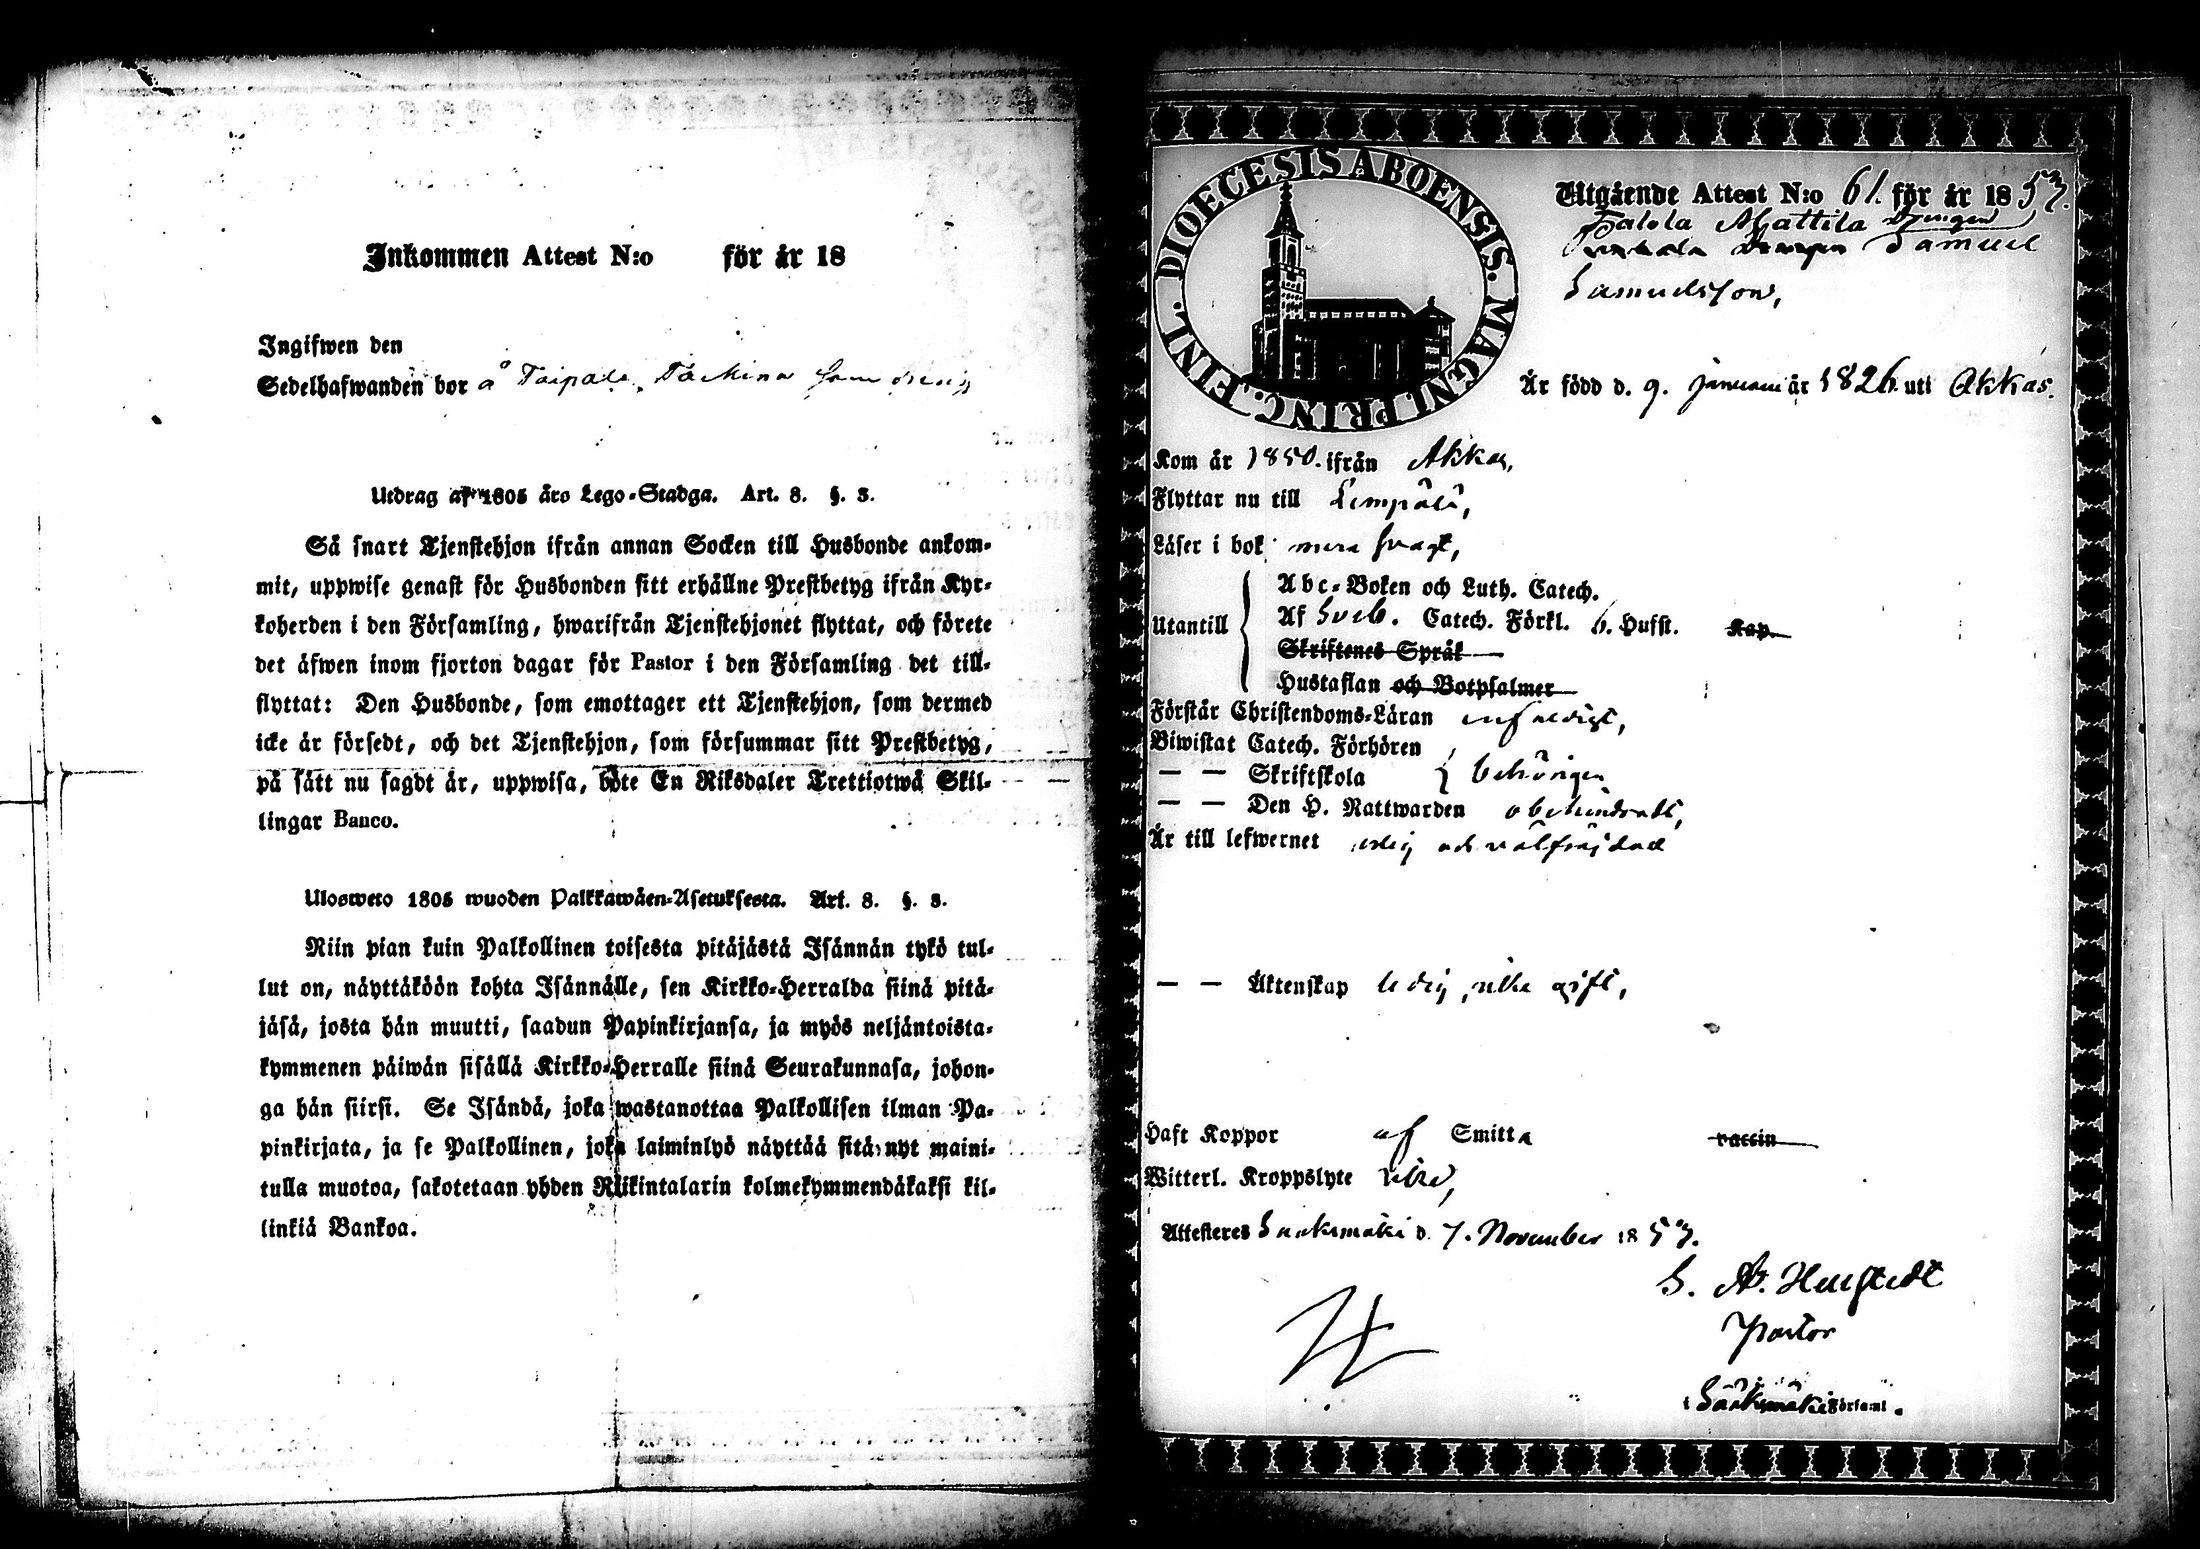 Inkommen Attest N:o för år 18
Ingifwen den
Sedelhafwanden bor å Taipale, som dräng
Utdrag af 1805 års Lego-Stadga. Art. 8. §. 3.
Så snart Tjenstehjon ifrån annan Socken till Husbonde ankom-
mit, uppwise genast för Husbonden sitt erhållne Prestbetyg ifrån Kyr-
koherden i den Församling, hwarifrån Tjenstehjonet flyttat, och förete
det äfwen inom fjorton dagar för Pastor i den Församling det till-
flyttat: Den Husbonde, som emottager ett Tjenstehjon, som dermed
icke är försedt, och det Tjenstehjon, som försummar sitt Prestbetyg,
på sätt nu sagdt är, uppwisa, böte En Riksdaler Trettiotwå Skil-
lingar Banco.
Ulosweto 1805 wuoden Palkkawäen-Asetuksesta. Art. 8. §. 3.
Niin pian kuin Palkollinen toisesta pitäjästä Isännän tykö tul-
lut on, näyttäköön kohta Isännälle, sen Kirkko-Herralda siinä pitä-
jäsä, josta hän muutti, saadun Papinkirjansa, ja myös neljäntoista-
kymmenen päiwän sisällä Kirkko-Herralle siinä Seurakunnasa, johon-
ga hän siirsi. Se Isändä, joka wastanottaa Palkollisen ilman Pa-
pinkirjata, ja se Palkollinen, joka laiminlyö näyttää sitä nyt maini-
tulla muotoa, sakotetaan yhden Riikintalarin kolmekymmendäkaksi kil-
linkiä Bankoa.
DIOECESIS ABOENSIS. MAGNI PRINC. FINL.
Utgående Attest N:o 61. för år 1853.
Talola Mattila Drengen
Drengen Samuel
Samuelsson,
Är född d. 9. Januarii år 1826. uti Akkas.
Kom år 1850. ifrån Akkas,
Flyttar nu till Lempälä,
Läser i bok mera svagt,
Utantill
Abc-Boken och Luth. Catech.
Af Sveb. Catech. Förkl. 6. Hufst. Kap.
Skriftenes Språk
Hustaflan och Botpsalmer
Förstår Christendoms-Läran enfaldigt,
Biwistat Catech. Förhören
— — Skriftskola } behörigen
— — Den H. Nattwarden obehindradt,
Är till lefwernet ärlig och välfräjdad
— — Äktenskap ledig, icke gift,
Haft Koppor af Smitta vaccin
Witterl. Kroppslyte utan,
Attesteres Sääksmäki d. 7. November 1853.
Pastor
i Sääksmäki Församl.